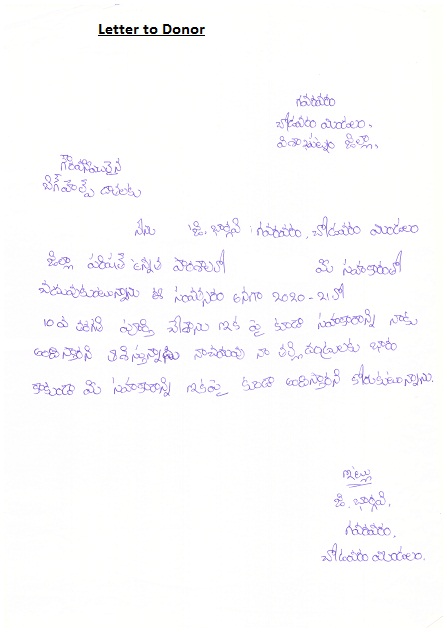 Letter to Donor
గవరవరం
చోడవరం మండలం,
విశాఖపట్నం జిల్లా,
గౌరవనీయులైన
బిగ్ హెల్ప్ దాతలకు
నేను జి. భార్గవి గవరవరం, చోడవరం మండలం
జిల్లా పరిషత్ ఉన్నత పాఠశాలలో మీ సహకారంతో
చదువుకుంటున్నాను ఈ సంవత్సరం అనగా 2020-21లో
10వ తరగతి పూర్తి చేశాను ఇక పై కూడా సహకారాన్ని నాకు
అందిస్తారని ఆశిస్తున్నాను నాచదువు నా తల్లిదండ్రులకు భారం
కాకుండా మీ సహకారాన్ని ఇకపై కూడా అందిస్తారని కోరుకుంటున్నాను.
ఇట్లు
జి. భార్గవి,
గవరవరం,
చోడవరం మండలం.